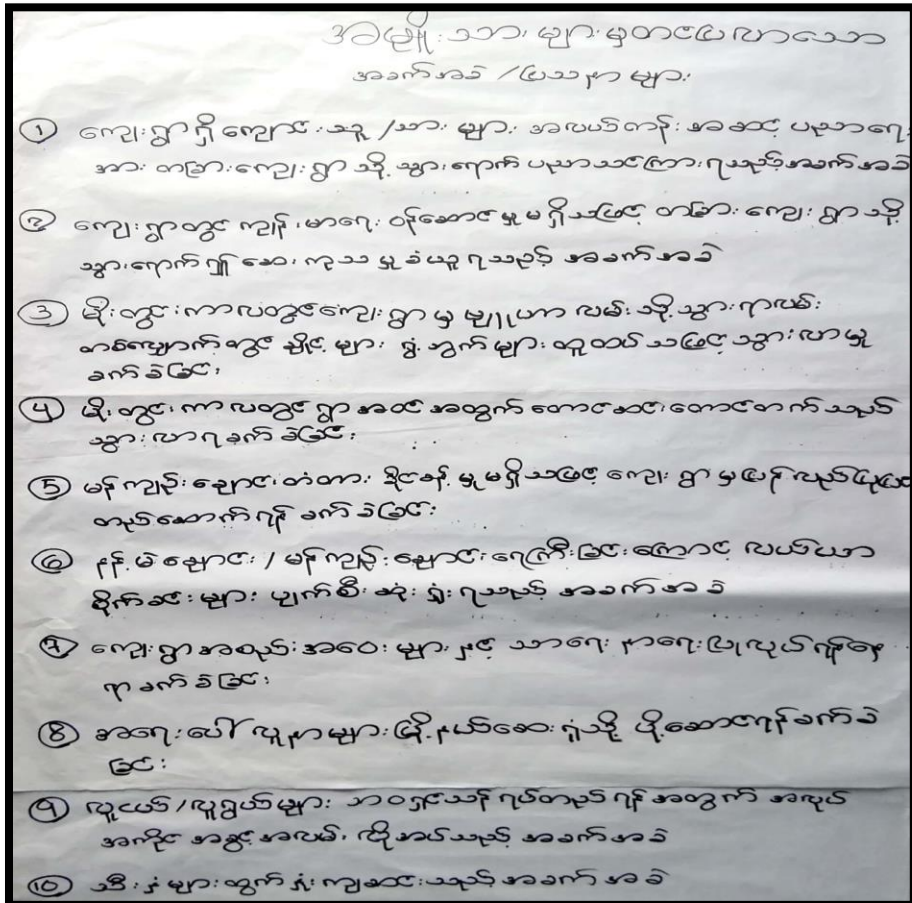 အမျိုးသားများမှတင်ပြလာသော
အခက်အခဲ / ပြဿနာများ
① ကျေးရွာရှိ ကျောင်းသူ / သားများ အလယ်တန်းအဆင့် ပညာရေး
အား တခြားကျေးရွာသို့ သွားရောက် ပညာသင်ကြားရသည့် အခက်အခဲ
② ကျေးရွာတွင် ကျန်းမာရေး ဝန်ဆောင်မှုမရှိသဖြင့် တခြားကျေးရွာသို့
သွားရောက်၍ ဆေးကုသမှုခံယူရသည့် အခက်အခဲ
③ မိုးတွင်းကာလတွင် ကျေးရွာမှ မျှူဟာလမ်းသို့ သွားရာလမ်း
တစ်လျှောက်တွင် ချိုင့်များ ရွှံ့ဘွက်များ ထူထပ်သဖြင့် သွားလာမှု
ခက်ခဲခြင်း
④ မိုးတွင်းကာလတွင် ရွာအဝင်အတွက် တောင်ဆင်းတောင်တက်သည်
သွားလာရခက်ခဲခြင်း
⑤ မန်ကျည်းချောင်းတံတား ခိုင်ခန့်မှုမရှိသဖြင့် ကျေးရွာမှ ပြန်လည်ပြုပြင်
တည်ဆောက်ရန် ခက်ခဲခြင်း
⑥ နန့်မဲချောင်း / မန်ကျည်းချောင်း ရေကြီးခြင်းကြောင့် လယ်ယာ
စိုက်ခင်းများ ပျက်စီးဆုံးရှုံးရသည့် အခက်အခဲ
⑦ ကျေးရွာအစည်းအဝေးများနှင့် သာရေးနာရေးပြုလုပ်ရန်နေ
ရာခက်ခဲခြင်း
⑧ အရေးပေါ်လူနာများ မြို့နယ်ဆေးရုံသို့ ပို့ဆောင်ရန်ခက်ခဲ
ခြင်း
⑨ လူငယ် / လူရွယ်များ ဘဝရှင်သန်ရပ်တည်ရန်အတွက် အလုပ်
အကိုင် အခွင့်အလမ်း လိုအပ်သည့် အခက်အခဲ
⑩ သီးနှံများထွက်နှုံးကျဆင်းသည့် အခက်အခဲ